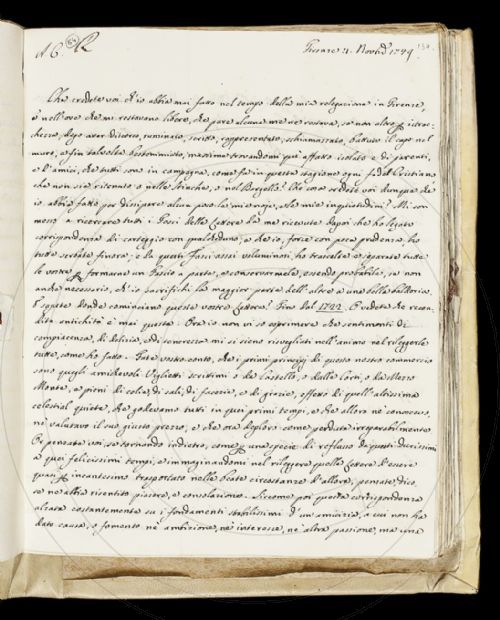 AC
Firenze 4. Novb. 1749
Che credete voi ch'io abbia mai fatto nel tempo della mia relegazione in Firenze,
e nell'ore che mi restavano libere, che pare alcuna me ne restava, se non altro per istrac=
chezza, dopo aver discorso, ruminato, scritto, rappresentato, schiamazzato, battuto il capo nel
muro, e fin talvolta bestemmiato, massime trovandomi qui affatto isolato e di parenti,
e d'amici, che tutti sono in campagna, come fa in questa stagione ogni fedel Cristiano
che non sia ritenuto o nelle Stinche, o nel Bargello? Che cosa credete voi dunque che
io abbia fatto per dissipare alcun poco la mia noja, e le mie inquietudini? Mi son
messo a ricercare tutti i Fasci delle Lettere da me ricevute dapoi che ho legato
corrispondenza di carteggio con qualcheduno, e che io, forse con poca prudenza, ho
tutte serbate finora, e da questi Fasci assai voluminosi ho trascelte e separate tutte
le vostre per formarne un Fascio a parte, e conservarmele, essendo probabile, se non
anche necessario, ch'io sacrifichi la maggior parte dell'altre a una bella balloria.
E sapete donde cominciano queste vostre Lettere? Fin dal 1722. E vedete che recon=
dita antichità è mai questa. Ora io non vi so esprimere che sentimenti di
compiacenza, di delizia, e di tenerezza mi si sieno risvegliati nell'animo nel rileggerle
tutte, come ho fatto. Fate vostro conto, che i primi principj di questo nostro commercio
sono quegli amichevoli Viglietti scrittimi o da Castello, o dalla Corte, o da Mezzo
Monte, e pieni di celie, di sali, di facezie, e di grazie, effetti di quell'altissima
celestial quiete, che godevamo tutti in quei primi tempi, e che allora nè conoscevo,
nè valutavo il suo giusto prezzo, e che ora deploro come perduta irreparabilmente
Or pensate voi, se tornando indietro, come per una specie di reflusso da questi durissimi
a quei felicissimi tempi, e immaginandomi nel rileggere quelle Lettere d'essere
quasi per incantesimo trasportato nelle beate circostanze d'allora, pensate, dico,
se ne abbia risentito piacere, e consolazione. Siccome poi questa corrispondenza
alzata costantemente su i fondamenti stabilissimi d'un'amicizia, a cui non ha
dato causa, o fomento nè ambizione, nè interesse, nè altra passione, ma una